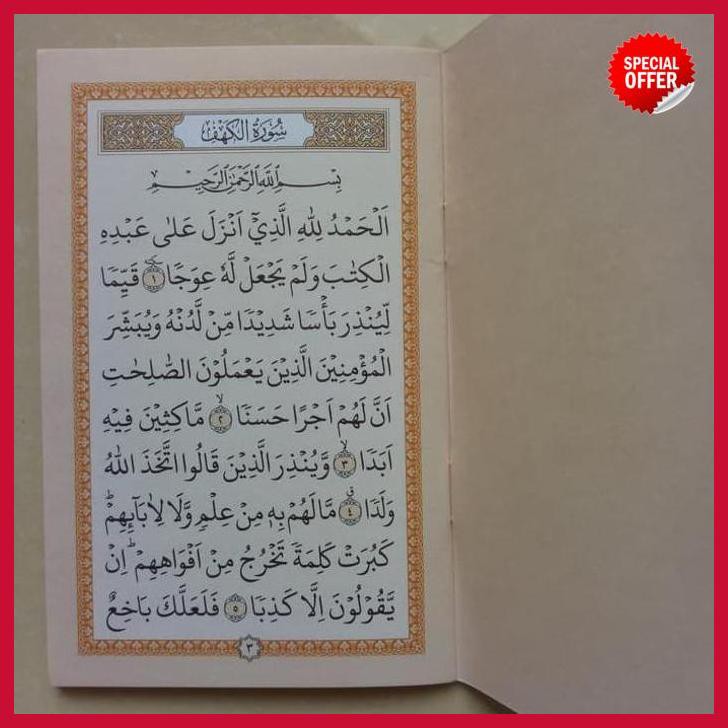 SPECIAL
OFFER
سُوْرَةُ الْكَهْفِ
بِسْمِ اللّٰهِ الرَّحْمٰنِ الرَّحِيْمِ
اَلْحَمْدُ لِلّٰهِ الَّذِيْٓ اَنْزَلَ عَلٰى عَبْدِهِ
الْكِتٰبَ وَلَمْ يَجْعَلْ لَّهٗ عِوَجًا ١ قَيِّمًا
لِّيُنْذِرَ بَأْسًا شَدِيْدًا مِّنْ لَّدُنْهُ وَيُبَشِّرَ
الْمُؤْمِنِيْنَ الَّذِيْنَ يَعْمَلُوْنَ الصّٰلِحٰتِ
اَنَّ لَهُمْ اَجْرًا حَسَنًا ٢ مَّاكِثِيْنَ فِيْهِ
اَبَدًا ٣ وَّيُنْذِرَ الَّذِيْنَ قَالُوا اتَّخَذَ اللّٰهُ
وَلَدًا ٤ مَّا لَهُمْ بِهٖ مِنْ عِلْمٍ وَّلَا لِاٰبَآئِهِمْ
كَبُرَتْ كَلِمَةً تَخْرُجُ مِنْ اَفْوَاهِهِمْ اِنْ
يَّقُوْلُوْنَ اِلَّا كَذِبًا ٥ فَلَعَلَّكَ بَاخِعٌ
٣